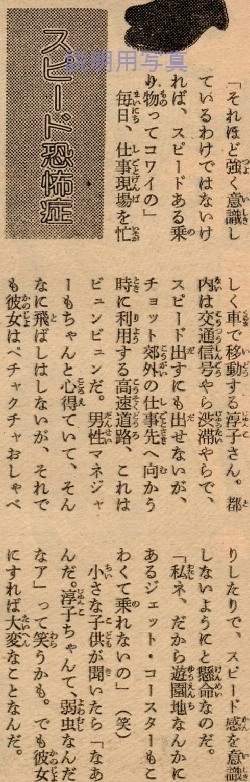 スピード恐怖症
説明用写真
「それほど強く意識し
ているわけではないけ
れば、スピードある乗
り物ってコワイの」
毎日、仕事現場を忙
しく車で移動する淳子さん。都
内は交通信号やら渋滞やらで、
スピード出すにも出せないが、
チョット郊外の仕事先へ向かう
時に利用する高速道路、これは
ビュンビュンだ。男性マネジャ
ーもちゃんと心得ていて、そん
なに飛ばしはしないが、それで
も彼女はペチャクチャおしゃべ
りしたりで、スピード感を意識
しないようにと懸命なのだ。
「私ネ、だから遊園地なんかに
あるジェット・コースターもこ
わくて乗れないの」（笑）
小さな子供が聞いたら「なあ
んだ。淳子ちゃんて、弱虫なんだ
なア」って笑うかも。でも彼女
にすれば大変なことなんだ。